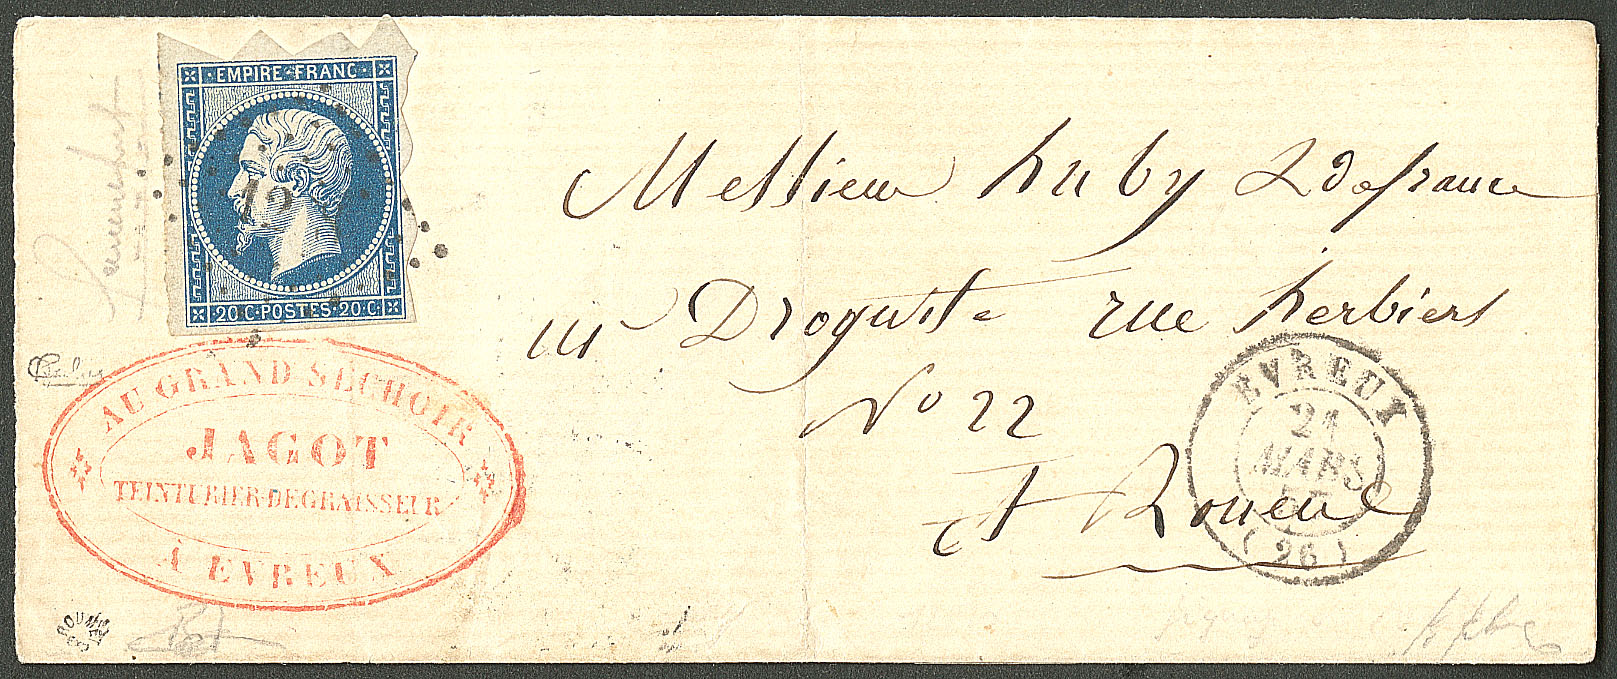 EMPIRE FRANC
12
20 C·POSTES·20 C
Messieu huby Ldefrance
Droguiste rue herbiers
No 22
et Rouene
AU GRAND SÉCHOIR
JAGOT
TEINTURIER-DEGRAISSEUR
À EVREUX
EVREUX
21
MARS
57
(26)
ROUMET